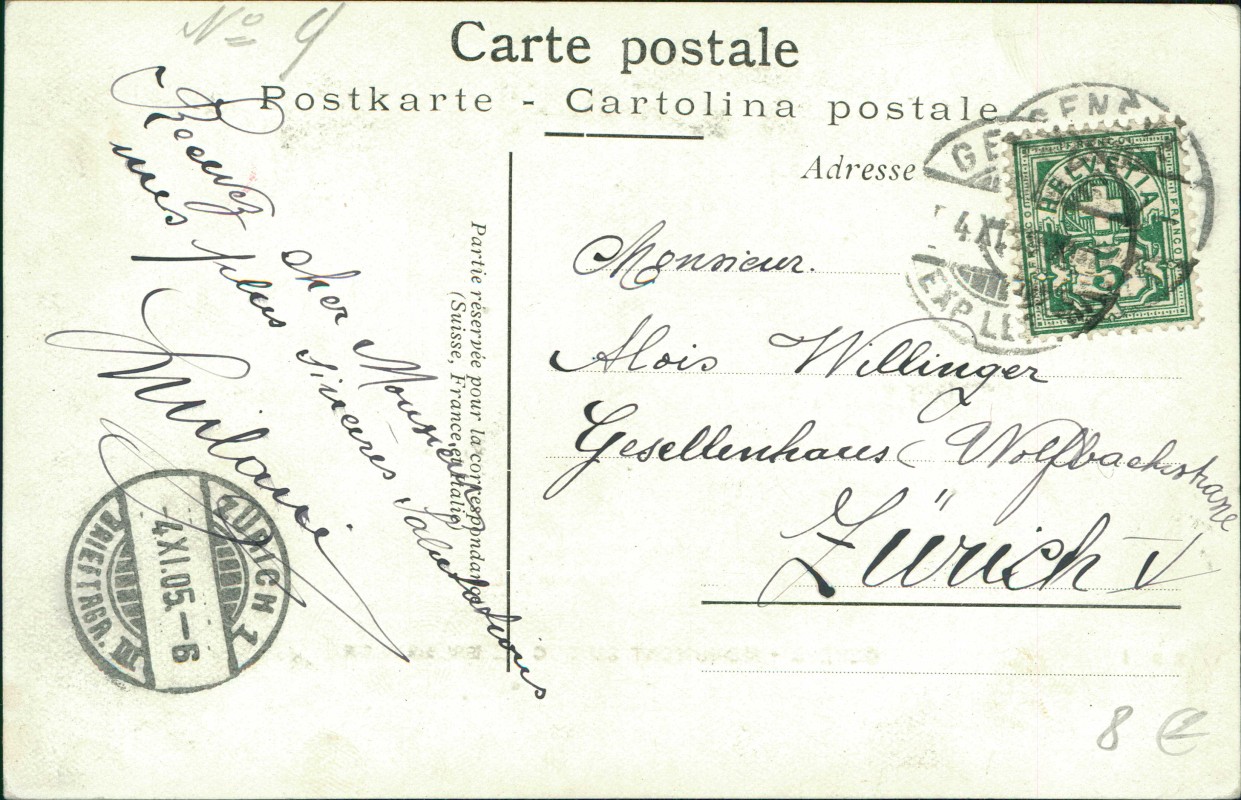 No 9
Carte postale
Postkarte - Cartolina postale
Adresse
Recevez cher Monsieur
mes plus sincères Salutations
Partie réservée pour la correspondance
(Suisse, France et Italie)
Monsieur.
Alois Willinger
Gesellenhaus (Wolfbachstrasse
Zürich V
FRANCO
HELVETIA
FRANCO
5
4 XI
EXP LE
ZÜRICH 1
4.XI.05.–6
BRIEFTRGR. III
8